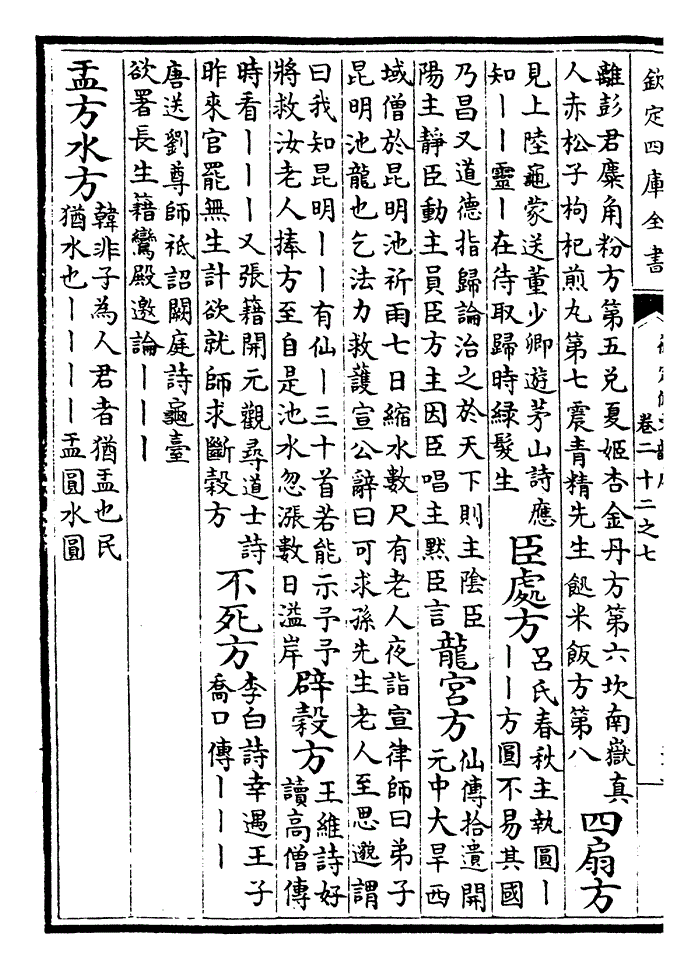 欽定四庫全書
卷二十二之七
離彭君麋角粉方第五兌夏姬杏金丹方第六坎南嶽真
人赤松子枸杞煎丸第七震青精先生䭀米飯方第八
四扇方
見上陸龜蒙送董少卿遊茅山詩應
知丨丨靈丨在待取歸時綠髮生
臣處方
呂氏春秋主執圓丨
丨丨方圓不易其國
乃昌又道德指歸論治之於天下則主陰臣
陽主靜臣動主員臣方主因臣唱主默臣言
龍宮方
仙傳拾遺開
元中大旱西
域僧於昆明池祈雨七日縮水數尺有老人夜詣宣律師曰弟子
昆明池龍也乞法力救護宣公辭曰可求孫先生老人至思邈謂
曰我知昆明丨丨有仙丨三十首若能示予予
將救汝老人捧方至自是池水忽漲數日溢岸
辟穀方
王維詩好
讀高僧傳
時看丨丨丨又張籍開元觀尋道士詩
昨來官罷無生計欲就師求斷穀方
不死方
李白詩幸遇王子
喬口傳丨丨丨
唐送劉尊師祗詔闕庭詩龜臺
欲署長生籍鸞殿邀論丨丨丨
盂方水方
韓非子為人君者猶盂也民
猶水也丨丨丨丨盂圓水圓